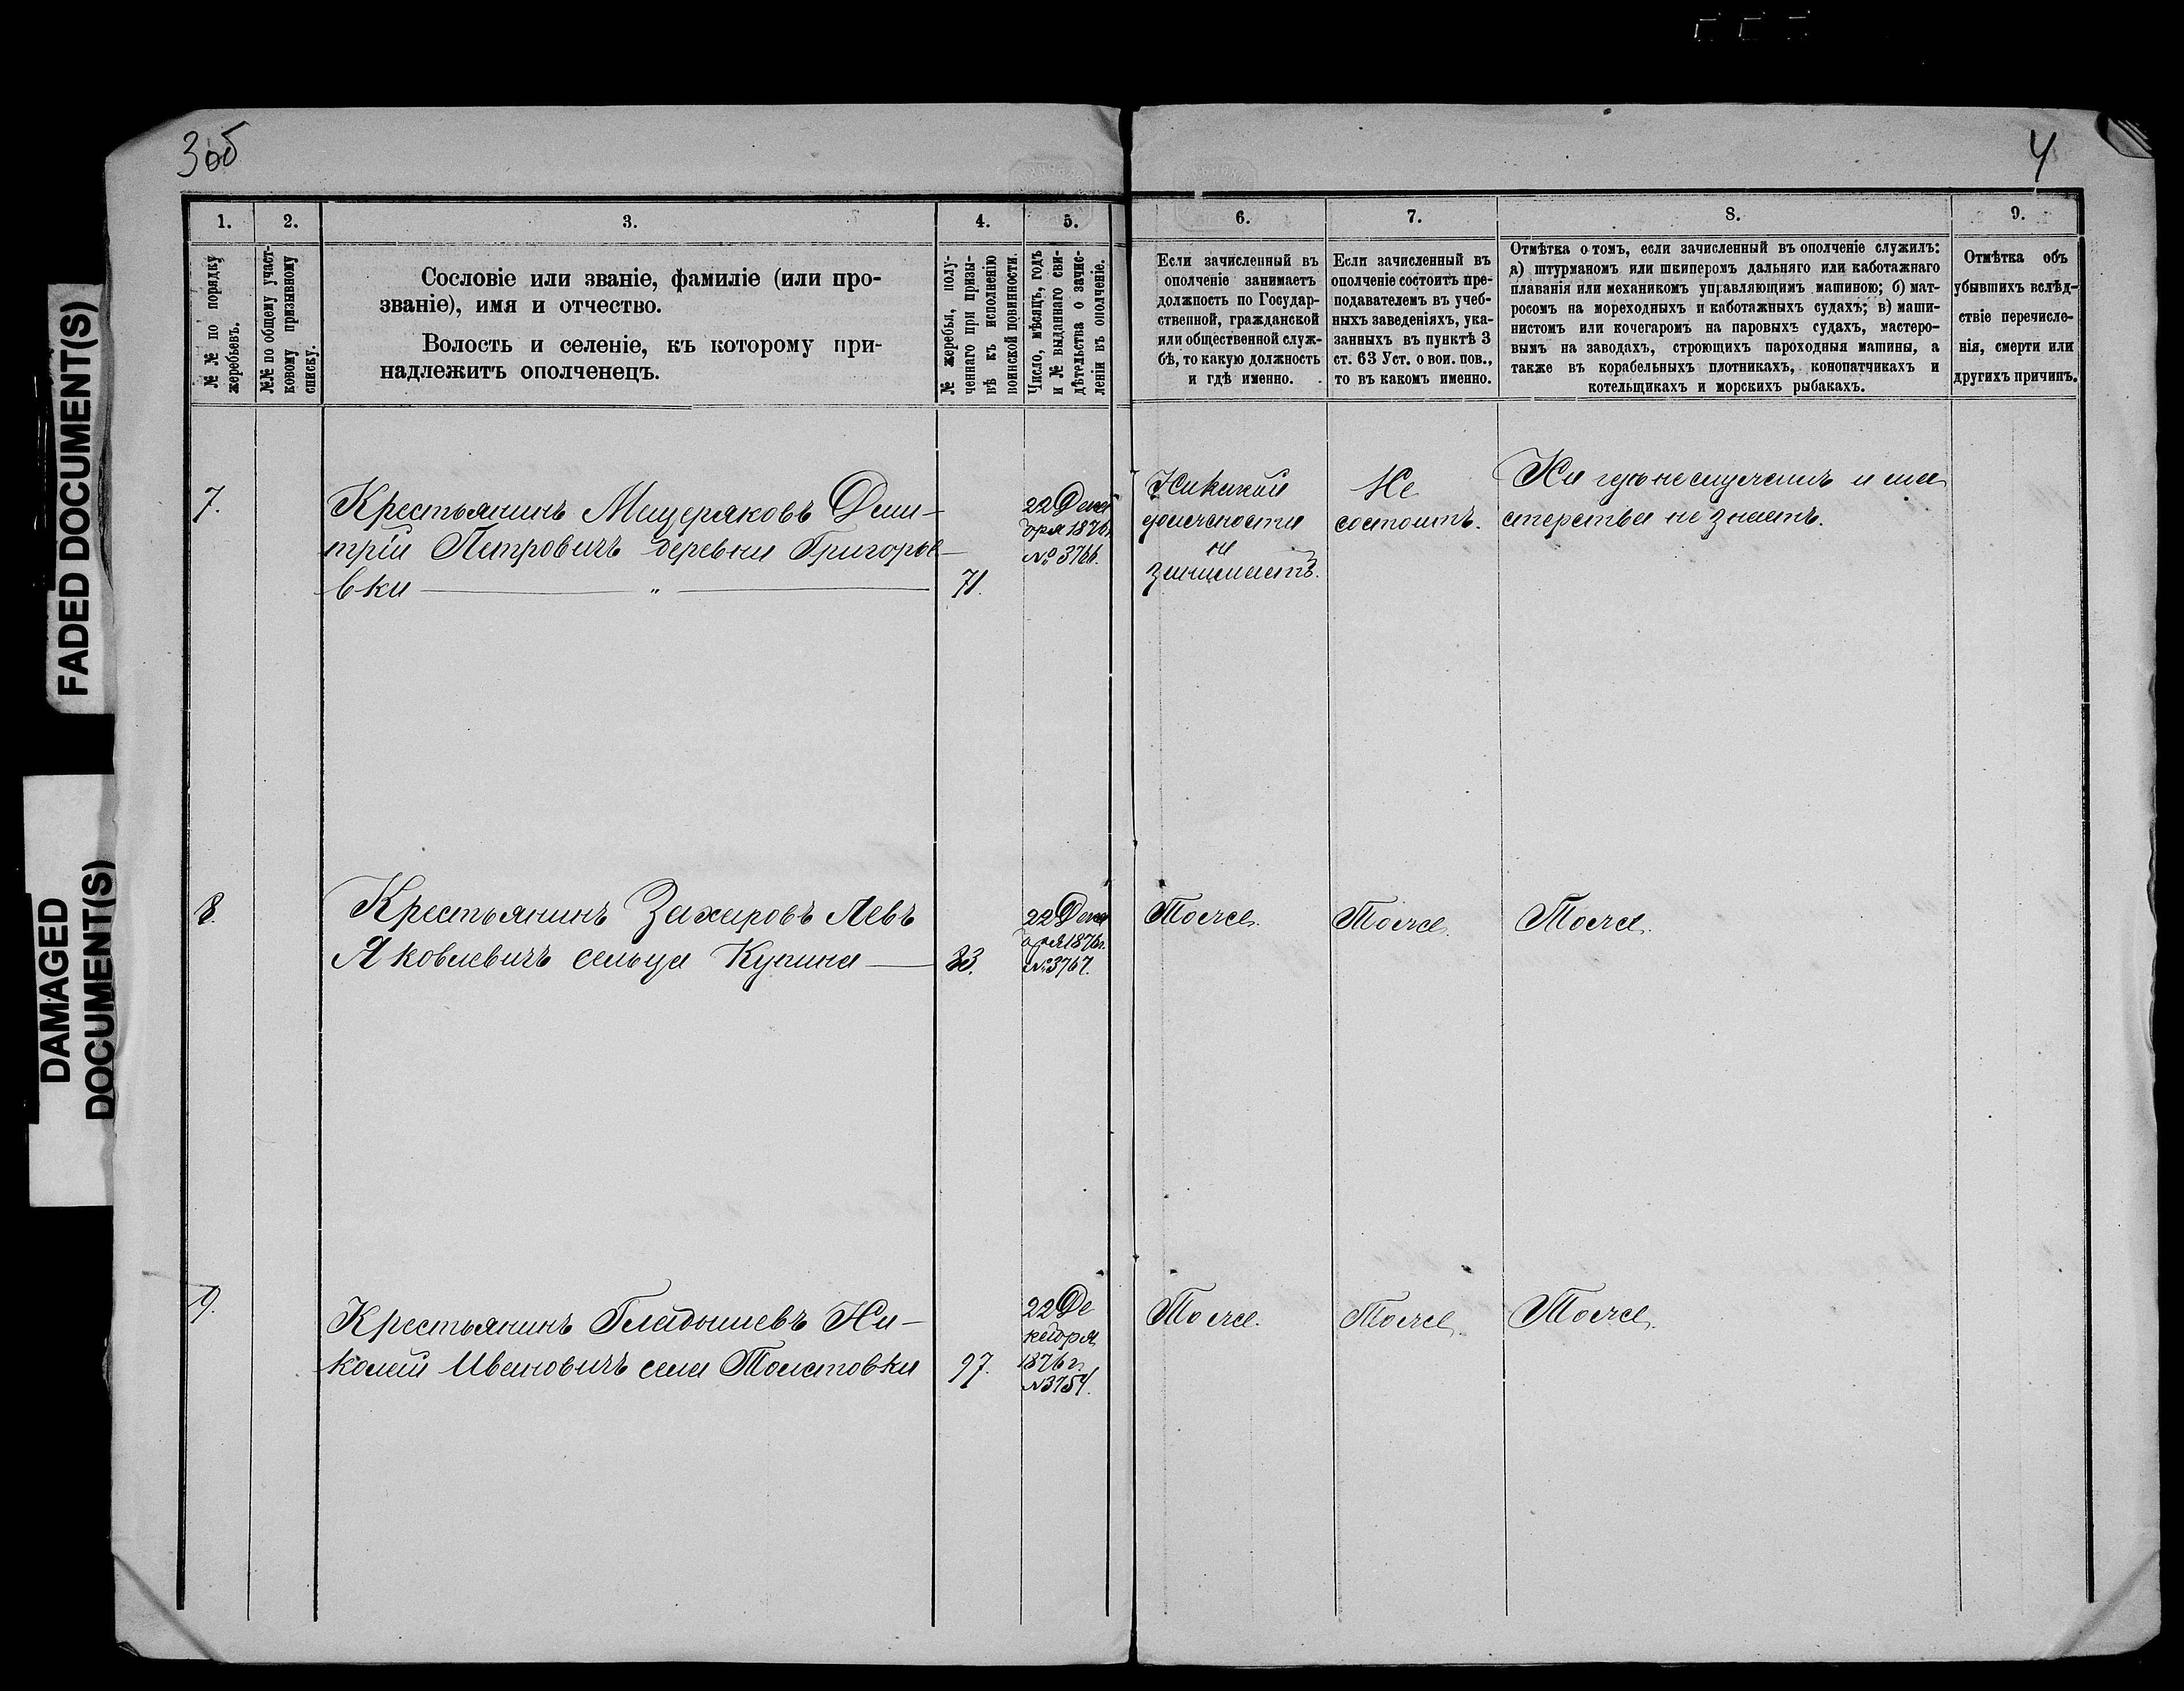 3об
4
FADED DOCUMENT(S)
DAMAGED
DOCUMENT(S)
1.
2.
3.
4.
5.
6.
7.
8.
9.
№№ по порядку
жеребьевъ.
№№ по общему участ-
ковому призывному
списку.
Сословіе или званіе, фамиліе (или про-
званіе), имя и отчество.
Волость и селеніе, къ которому при-
надлежитъ ополченецъ.
№ жеребья, полу-
ченнаго при призы-
вѣ къ исполненію
воинской повинности.
Число, мѣсяцъ, годъ
и № выданнаго сви-
дѣтельства о зачис-
леніи въ ополченіе.
Если зачисленный въ
ополченіе занимаетъ
должность по Государ-
ственной, гражданской
или общественной служ-
бѣ, то какую должность
и гдѣ именно.
Если зачисленный въ
ополченіе состоитъ пре-
подавателемъ въ учеб-
ныхъ заведеніяхъ, ука-
занныхъ въ пунктѣ 3
ст. 63 Уст. о вои. пов.,
то въ какомъ именно.
Отмѣтка о томъ, если зачисленный въ ополченіе служилъ:
а) штурманомъ или шкиперомъ дальняго или каботажнаго
плаванія или механикомъ управляющимъ машиною; б) мат-
росомъ на мореходныхъ и каботажныхъ судахъ; в) маши-
нистомъ или кочегаромъ на паровыхъ судахъ, мастеро-
вымъ на заводахъ, строющихъ пароходныя машины, а
также въ корабельныхъ плотникахъ, конопатчикахъ и
котельщикахъ и морскихъ рыбакахъ.
Отмѣтка объ
убывшихъ вслѣд-
ствіе перечисле-
нія, смерти или
другихъ причинъ.
7.
Крестьянинъ Мещеряковъ Дми-
трій Петровичъ деревни Григорье-
вки — " —
71.
22 Дека
бря 1876
№ 3766.
Никакой
должности
не
занимаетъ.
Не
состоитъ.
Ни гдѣ не служилъ и ма
стерства не знаетъ.
8.
Крестьянинъ Захаровъ Левъ
Яковлевичъ сельца Купина —
83.
22 Дека
бря 1876 г.
№ 3767.
Тоже.
Тоже.
Тоже.
9.
Крестьянинъ Гладышевъ Ни-
колай Ивановичъ села Толстовки
97.
22 Де
кабря
1876 г.
№ 3754.
Тоже.
Тоже.
Тоже.